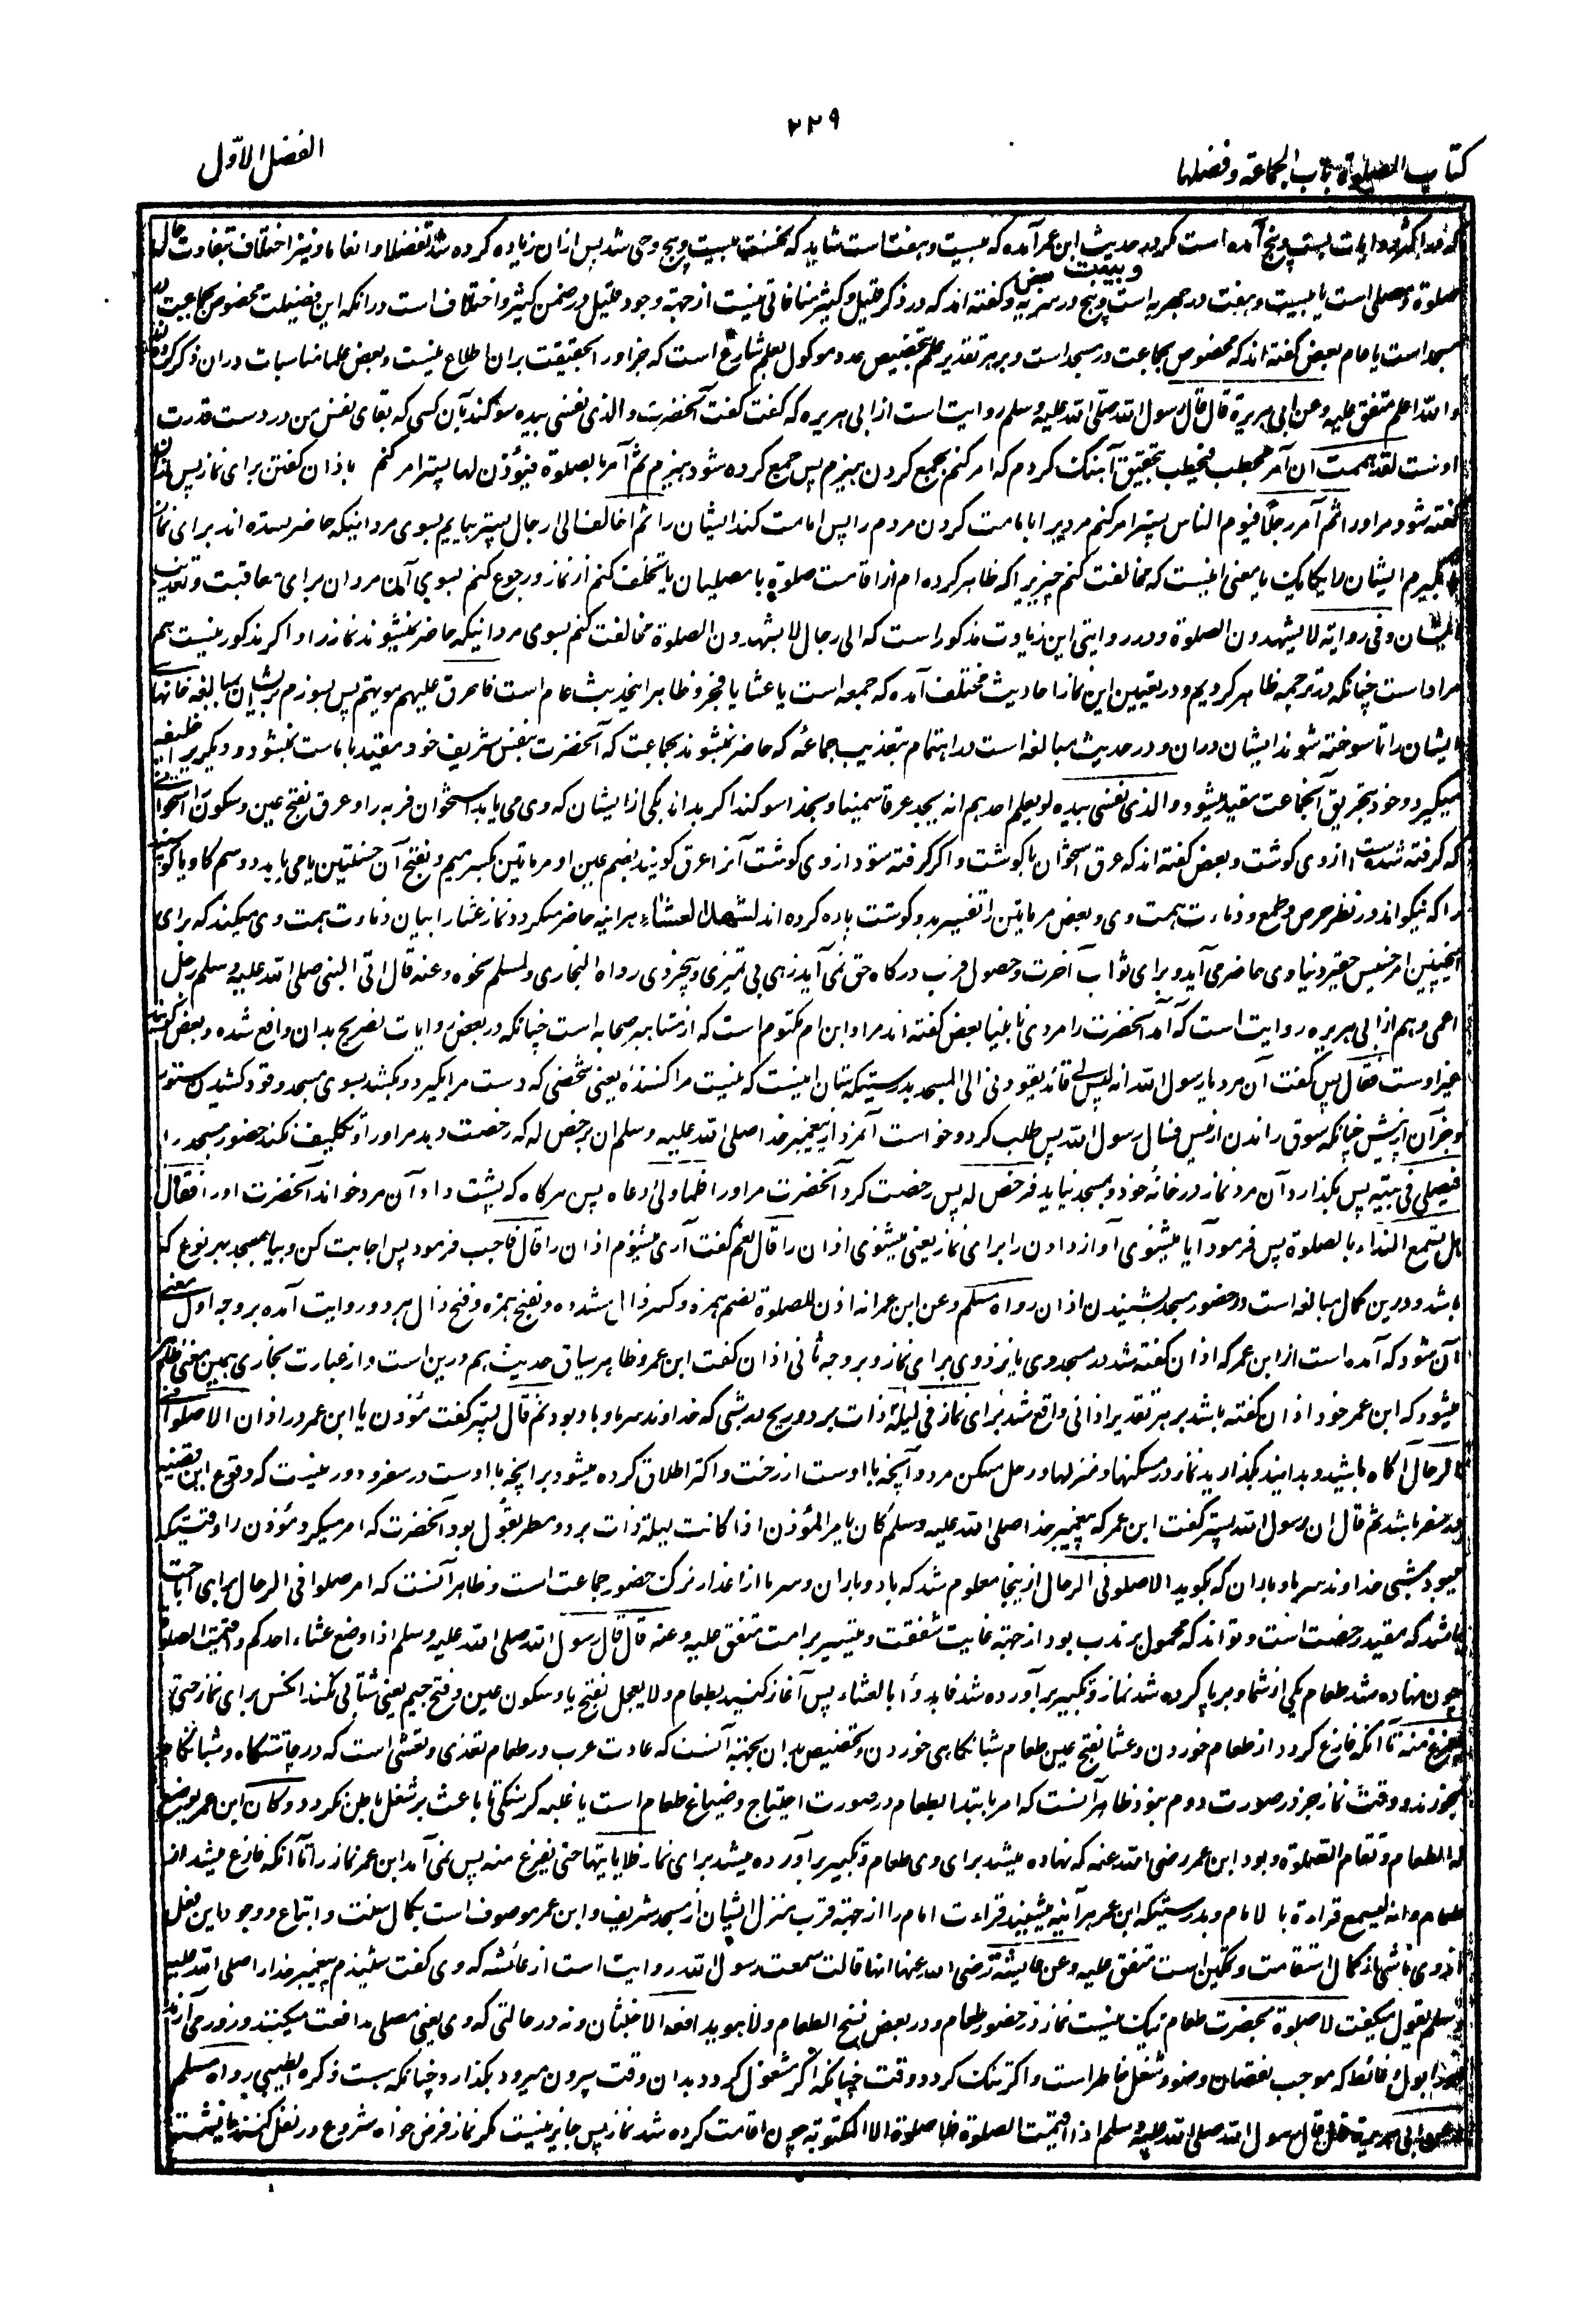 ٢٢٩
کتاب الصلوة باب الجماعة وفضلها
الفصل الاوّل
اکثر روایات بست وپنج آمده است کودر حدیث ابن عمر آمده که بیست وهفت است شاید که نخست بیست وپنج وحی شد پس ازان زیاده کرده شد تفضلا وانعاما ونیز اختلاف بتفاوت حال
صلوة ومصلی است یا بیست وهفت در جهریه است وپنج در سریه وبعض گفته اند که در ذکر قلیل وکثیر منافاتی نیست از جهته وجود قلیل در ضمن کثیر واختلاف است درانکه این فضیلت مخصوص بجماعت
مسجد است یا عام بعض گفته اند که مخصوص بجماعت در مسجد است وبر هر تقدیر علم تخصیص عدد موکول بعلم شارع است که جز اورا بحقیقت بران اطلاع نیست وبعض علما مناسبات دران ذکر کرده
والله اعلم متفق علیه وعن ابی هریرة قال قال رسول الله صلی الله علیه وسلم روایت است از ابی هریره که گفت گفت آنحضرت والذی نفسی بیده سوگند بآن کسی که بقای نفس من در دست قدرت
اوست لقد هممت ان آمر بحطب فیحطب بتحقیق آهنگ کردم که امر کنم بجمع کردن هیزم پس جمع کرده شود هیزم ثم آمر بالصلوة فیؤذن لها پستر امر کنم باذان گفتن برای نماز پس اذان
گفته شود مر اورا ثم آمر رجلا فیوم الناس پستر امر کنم مردیرا بامامت کردن مردم را پس امامت کند ایشان را ثم اخالف الی رجال پستر بیایم بسوی مردانیکه حاضر نشده اند برای نماز
بگیرم ایشان را یکایک یا معنی اینست که مخالفت کنم چیزیرا که ظاهر کرده ام از اقامت صلوة با مصلیان یا تخلف کنم از نماز ورجوع کنم بسوی آن مردان برای عاقبت وتعذیب
ایشان وفی روایة لا یشهدون الصلوة ودر روایتی این زیادت مذکور است که الی رجال لا یشهدون الصلوة مخالفت کنم بسوی مردانیکه حاضر نمیشوند نماز را واگر مذکور نیست هم
مراد است چنانکه در ترجمه ظاهر کردیم ودر تعیین این نماز احادیث مختلف آمده که جمعه است یا عشا یا فجر وظاهر اینحدیث عام است فاحرق علیهم بیوتهم پس بسوزم بر ایشان بمبالغه خانهای
ایشان را تا سوخته شوند ایشان دران ودر حدیث مبالغه است در اهتمام بتعذیب جماعه که حاضر نمیشوند بجماعت که آنحضرت بنفس شریف خود مقید بامامت نمیشود ودیگریرا خلیفه
میگیرد وخود بتحریق آنجماعت مقید میشود والذی نفسی بیده لو یعلم احدهم انه یجد عرقا سمینا وبخدا سوگند اگر بداند یکی از ایشان که وی می یابد استخوان فربه را وعرق بفتح عین وسکون را استخوانی
که گرفته شده است ازوی گوشت وبعض گفته اند که عرق استخوان با گوشت واگر گرفته شود ازوی گوشت آنرا عرق گویند بضم عین او مرماتین بکسر میم وبفتح آن حسنتین یا می یابد دو سم گاو یا گوسپند
را که نیکو اند در نظر حرص وطمع ودناءت همت وی وبعض مرماتین را تفسیر بدو گوشت پاره کرده اند لشهد العشاء هر آینه حاضر میگردد نماز عشا را بیان دناءت همت وی میکند که برای
اینچنین امر خسیس حقیر دنیاوی حاضر می آید وبرای ثواب آخرت وحصول قرب درگاه حق نمی آید زهی بی تمیزی وبیخردی رواه البخاری ولمسلم نحوه وعنه قال اتی النبی صلی الله علیه وسلم رجل
اعمی وهم از ابی هریره روایت است که آمد آنحضرت را مردی نابینا بعض گفته اند مراد ابن ام مکتوم است که از مشاهیر صحابه است چنانکه در بعض روایات تصریح بدان واقع شده وبعض گویند
غیر اوست فقال پس گفت آن مرد یا رسول الله انه لیس لی قائد یقودنی الی المسجد بدرستیکه شان اینست که نیست مرا کشنده یعنی شخصی که دست مرا بگیرد وبکشد بسوی مسجد وقود کشیدن ستور
وجز آن از پیش چنانکه سوق راندن از پس فسال رسول الله پس طلب کرد وخواست آنمرد از پیغمبر خدا صلی الله علیه وسلم ان یرخص له که رخصت دهد مر اورا وتکلیف نکند حضور مسجد را
فیصلی فی بیته پس بگذارد آن مرد نماز در خانهٔ خود وبمسجد نیاید فرخص له پس رخصت کرد آنحضرت مر اورا فلما ولی دعاه پس هرگاه که پشت داد آن مرد خواند آنحضرت اورا فقال
هل تسمع النداء بالصلوة پس فرمود آیا میشنوی آواز دادن را برای نماز یعنی میشنوی اذان را قال نعم گفت آری میشنوم اذان را قال فاجب فرمود پس اجابت کن وبیا بمسجد بهر نوع که
باشد ودرین کمال مبالغه است در حضور مسجد بشنیدن اذان رواه مسلم وعن ابن عمر انه اذن للصلوة بضم همزه وکسر ذال مشدده وبفتح همزه وفتح ذال هر دو روایت آمده بر وجه اول معنی
آن شود که آمده است از ابن عمر که اذان گفته شد در مسجد وی یا نزد وی برای نماز وبر وجه ثانی اذان گفت ابن عمر وظاهر سیاق حدیث هم درین است واز عبارت بخاری همین معنی ظاهر
میشود که ابن عمر خود اذان گفته باشد بر هر تقدیر اذانی واقع شد برای نماز فی لیلة ذات برد وریح در شبی که خداوند سرما وباد بود ثم قال پستر گفت مؤذن یا ابن عمر در اذان الا صلوا فی
الرحال آگاه باشید وبدانید بگذارید نماز در مسکنها ومنزلها ورحل مسکن مرد وآنچه با اوست از رخت واکثر اطلاق کرده میشود بر آنچه با اوست در سفر ودور نیست که وقوع این قضیه
در سفر باشد ثم قال ان رسول الله پستر گفت ابن عمر که پیغمبر خدا صلی الله علیه وسلم کان یامر المؤذن اذا کانت لیلة ذات برد ومطر یقول بود آنحضرت که امر میکرد مؤذن را وقتیکه
میبود شبی خداوند سرما وباران که بگوید الا صلوا فی الرحال ازینجا معلوم شد که باد وباران وسرما از اعذار ترک حضور جماعت است وظاهر آنست که امر صلوا فی الرحال برای اباحت
باشد که مفید رخصت است وتواند که محمول بر ندب بود از جهته غایت شفقت وتیسیر بر امت متفق علیه وعنه قال قال رسول الله صلی الله علیه وسلم اذا وضع عشاء احدکم واقیمت الصلوة
چون نهاده شد طعام یکی از شما وبرپا کرده شد نماز وتکبیر برآورده شد فابدؤا بالعشاء پس آغاز کنید بطعام ولا یعجل بفتح یا وسکون عین وفتح جیم یعنی شتابی نکند آنکس برای نماز حتی
یفرغ منه تا آنکه فارغ گردد از طعام خوردن وعشا بفتح عین طعام شبانگاهی خوردن وتخصیص بدان بجهته آنست که عادت عرب در طعام تغدی وتعشی است که در چاشتگاه وشبانگاه
میخورند ووقت نماز جز در صورت دوم نبود ظاهر آنست که امر بابتدا بطعام در صورت احتیاج وضیاع طعام است یا غلبه گرسنگی تا باعث بر شغل باطن نگردد وکان ابن عمر یوضع
له الطعام وتقام الصلوة وبود ابن عمر رضی الله عنه که نهاده میشد برای وی طعام وتکبیر برآورده میشد برای نماز فلا یاتیها حتی یفرغ منه پس نمی آمد ابن عمر نماز را تا آنکه فارغ میشد از
طعام وانه لیسمع قراءة الامام وبدرستیکه ابن عمر هر آینه میشنید قراءت امام را از جهته قرب منزل ایشان از مسجد شریف وابن عمر موصوف است بکمال سنت واتباع ووجود این فعل
ازوی ناشی از کمال استقامت وتمکین است متفق علیه وعن عایشة رضی الله عنها انها قالت سمعت رسول الله روایت است از عائشه که وی گفت شنیدم پیغمبر خدا را صلی الله علیه
وسلم یقول میگفت لا صلوة بحضرة طعام نیک نیست نماز در حضور طعام ودر بعض نسخ الطعام ولا هو یدافعه الاخبثان ونه در حالتی که وی یعنی مصلی مدافعت میکنند وزور می آرند
بول وغائط که موجب نقصان وضو وشغل خاطر است واگر تنگ گردد وقت چنانکه اگر مشغول گردد بدان وقت بیرون میرود بگذارد چنانکه هست ذکره الطیبی رواه مسلم
وعن ابی هریرة قال قال رسول الله صلی الله علیه وسلم اذا اقیمت الصلوة فلا صلوة الا المکتوبة چون اقامت کرده شد نماز پس جایز نیست مگر نماز فرض خواه شروع در نفل کنند